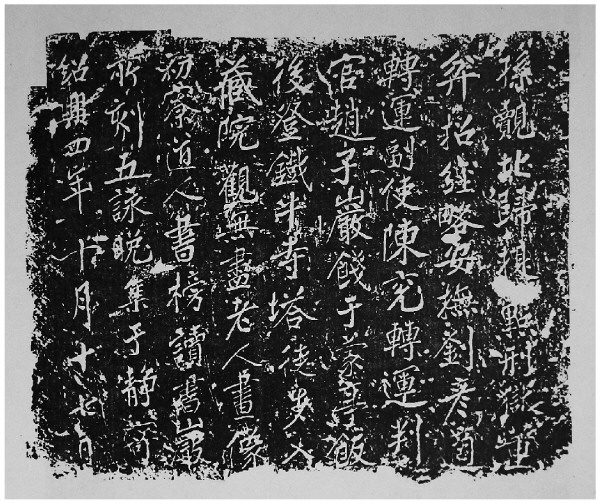 孫覿北歸提點刑獄董
弅招經略安撫劉彥適
轉運副使陳兖轉運判
官趙子巖餞于蒙亭飯
後登鐵牛寺塔徒步入
藏院觀無盡老人畫像
初寮道人書榜讀書巖
新刻五詠晚集于靜寄
紹興四年十月十七日